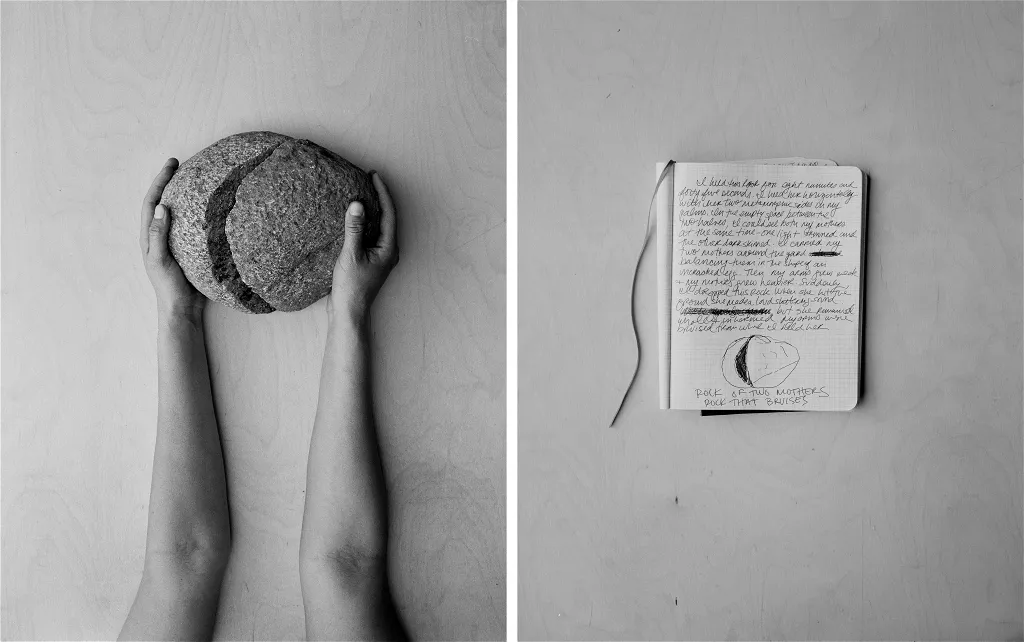 I held this rock for eight minutes and
forty five seconds. I held her horizontally
with her two metamorphic sides in my
palms. In the empty space between the
two halves, I could see both my mothers
at the same time - one light skinned and
the other dark skinned. I carried my
two mothers around the yard
balancing them in the shape of an
uncracked egg. Then my arms grew weak
+ my mothers grew heavier. Suddenly,
I dropped this rock. When she hit the
ground she made a loud shattering sound
but she remained
whole + unharmed. My arms were
bruised from where I held her
ROCK OF TWO MOTHERS
ROCK THAT BRUISES